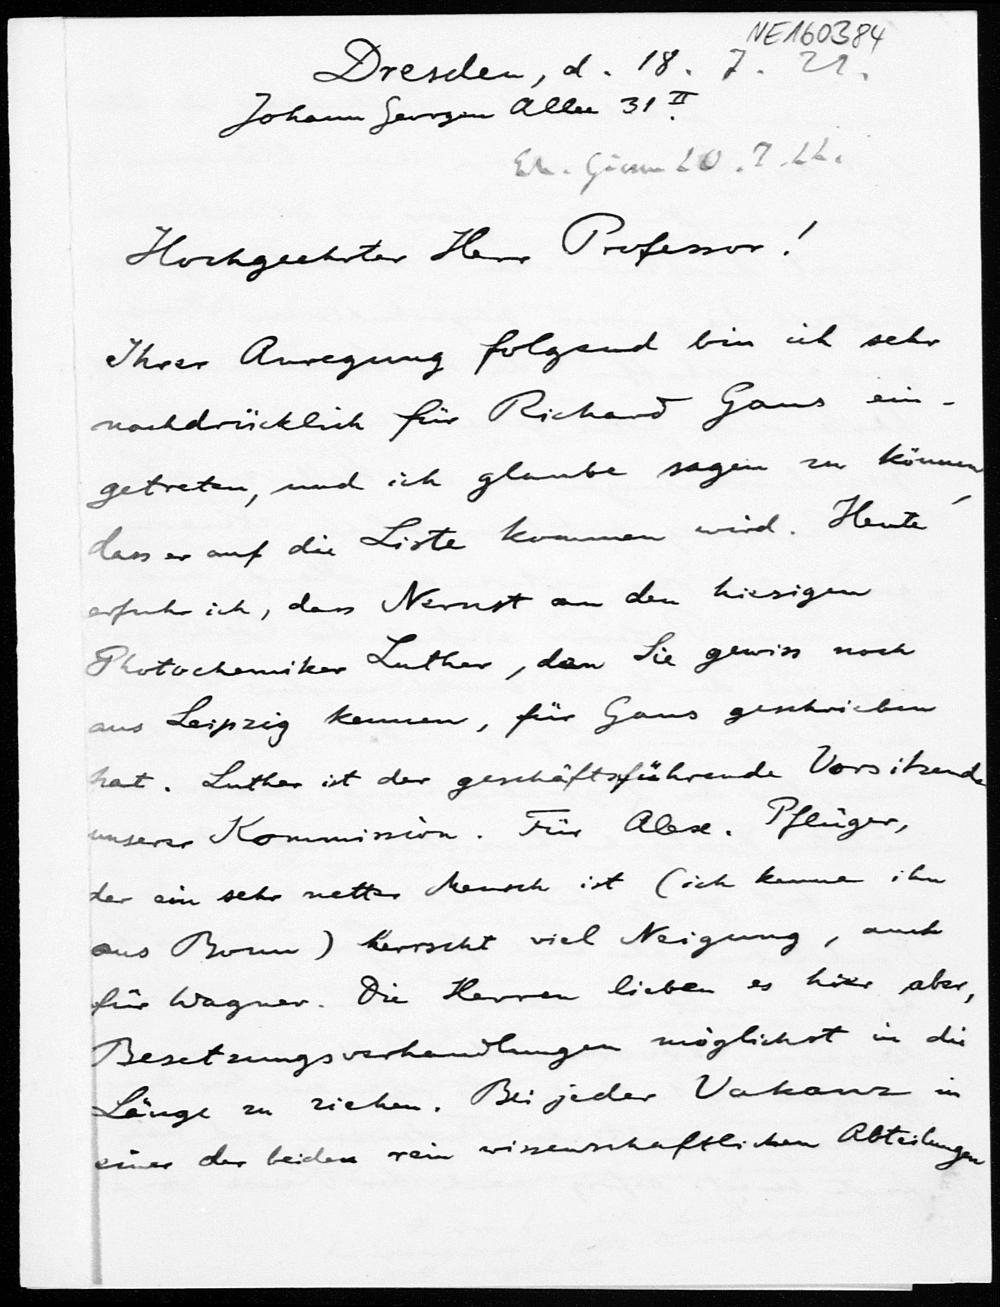 NE160384
Dresden, d. 18. 7. 21.
Johann Georgen Allee 31 II.
Hochgeehrter Herr Professor!
Ihrer Anregung folgend bin ich sehr
nachdrücklich für Richard Gans ein-
getreten, und ich glaube sagen zu können,
dass er auf die Liste kommen wird. Heute
erfuhr ich, dass Nernst an den hiesigen
Photochemiker Luther, den Sie gewiss noch
aus Leipzig kennen, für Gans geschrieben
hat. Luther ist der geschäftsführende Vorsitzende
unserer Kommission. Für Alex. Pflüger,
der ein sehr netter Mensch ist (ich kenne ihn
aus Bonn) herrscht viel Neigung, auch
für Wagner. Die Herren lieben es hier aber,
Besetzungsverhandlungen möglichst in die
Länge zu ziehen. Bei jeder Vakanz in
einer der beiden rein wissenschaftlichen Abteilungen